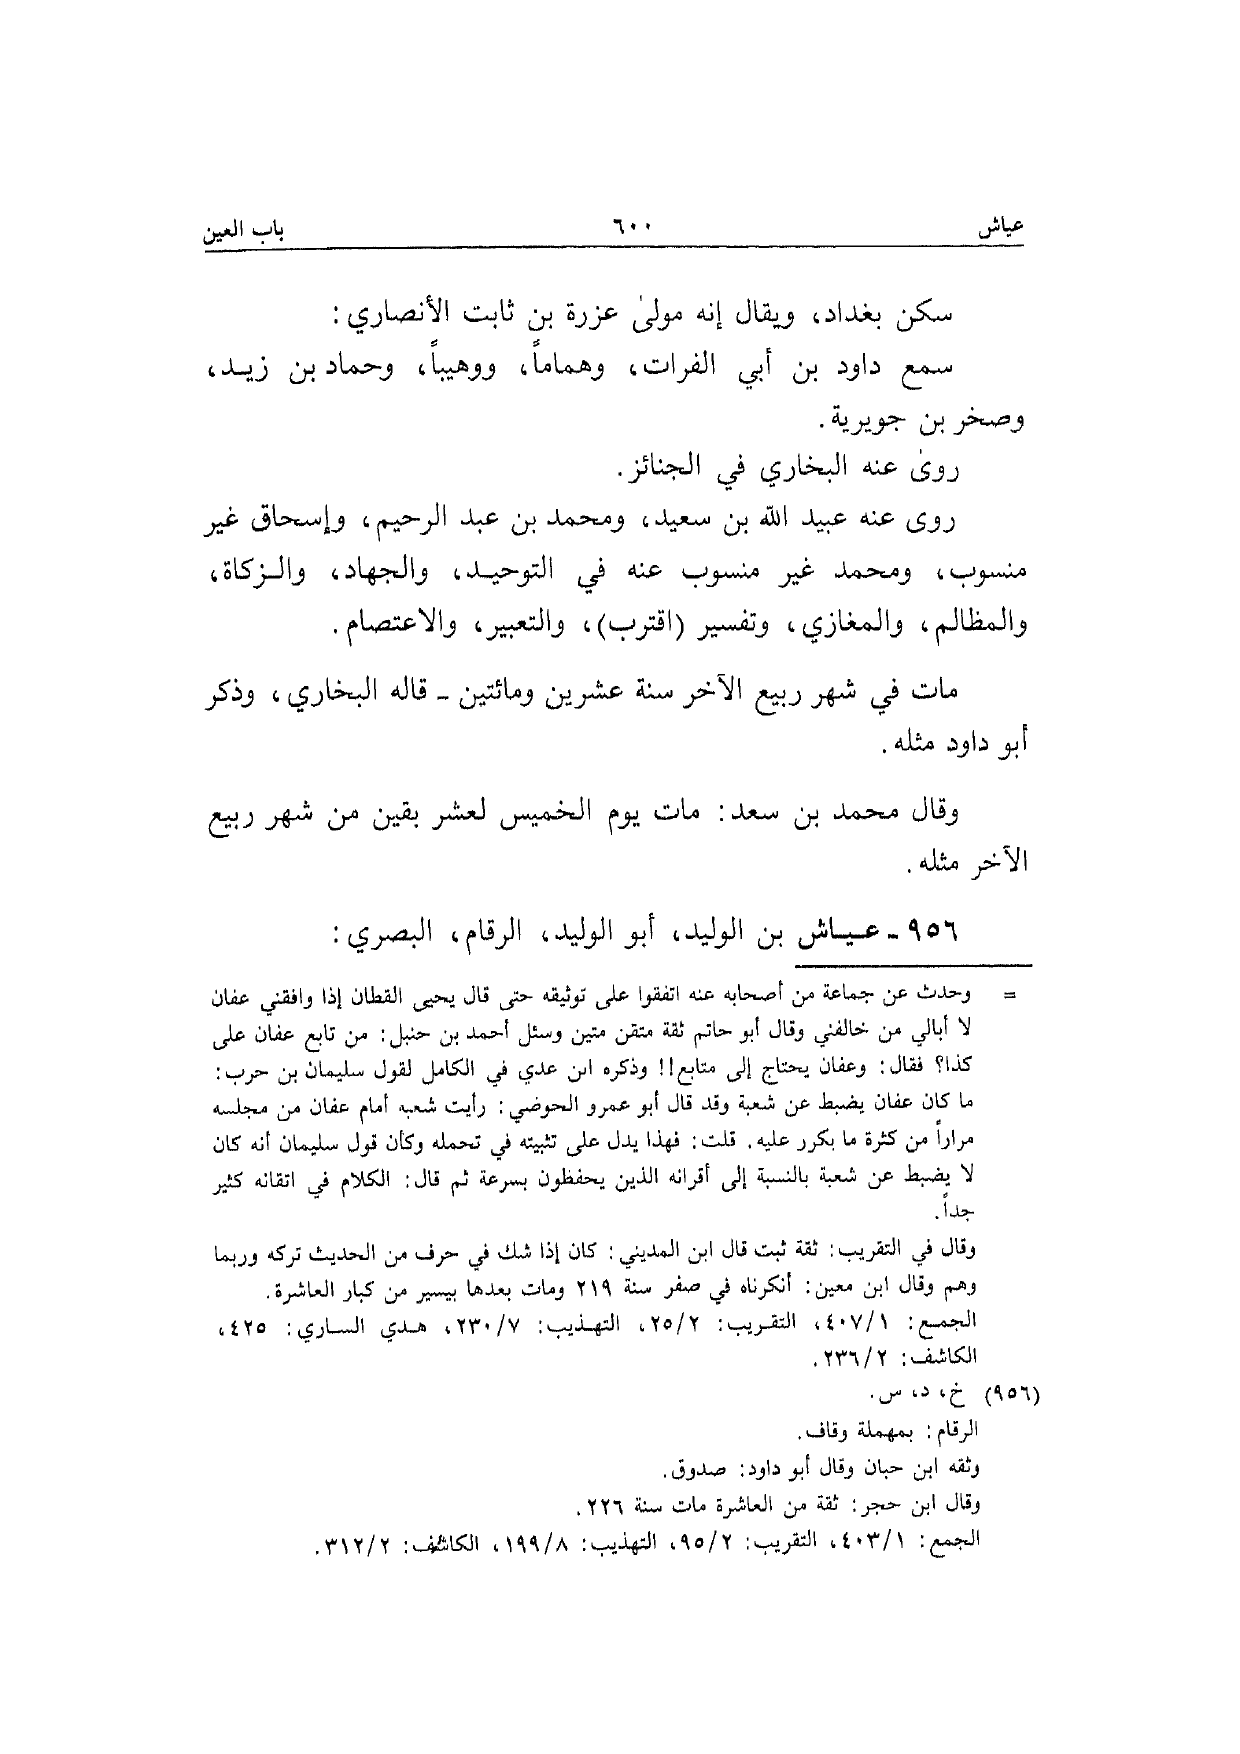 عياش ٦٠٠ باب العين
سكن بغداد، ويقال إنه مولىٰ عزرة بن ثابت الأنصاري:
سمع داود بن أبي الفرات، وهماماً، ووهيباً، وحماد بن زيـد،
وصخر بن جويرية.
روىٰ عنه البخاري في الجنائز.
روى عنه عبيد الله بن سعيد، ومحمد بن عبد الرحيم، وإسحاق غير
منسوب، ومحمد غير منسوب عنه في التوحيـد، والجهاد، والـزكاة،
والمظالم، والمغازي، وتفسير (اقترب)، والتعبير، والاعتصام.
مات في شهر ربيع الآخر سنة عشرين ومائتين ـ قاله البخاري، وذكر
أبو داود مثله.
وقال محمد بن سعد: مات يوم الخميس لعشر بقين من شهر ربيع
الآخر مثله.
٩٥٦ ـ عـيـاش بن الوليد، أبو الوليد، الرقام، البصري:
= وحدث عن جماعة من أصحابه عنه اتفقوا على توثيقه حتى قال يحيى القطان إذا وافقني عفان
لا أبالي من خالفني وقال أبو حاتم ثقة متقن متين وسئل أحمد بن حنبل: من تابع عفان على
كذا؟ فقال: وعفان يحتاج إلى متابع!! وذكره ابن عدي في الكامل لقول سليمان بن حرب:
ما كان عفان يضبط عن شعبة وقد قال أبو عمرو الحوضي: رأيت شعبه أمام عفان من مجلسه
مراراً من كثرة ما يكرر عليه. قلت: فهذا يدل على تثبيته في تحمله وكأن قول سليمان أنه كان
لا يضبط عن شعبة بالنسبة إلى أقرانه الذين يحفظون بسرعة ثم قال: الكلام في اتقانه كثير
جداً.
وقال في التقريب: ثقة ثبت قال ابن المديني: كان إذا شك في حرف من الحديث تركه وربما
وهم وقال ابن معين: أنكرناه في صفر سنة ٢١٩ ومات بعدها بيسير من كبار العاشرة.
الجمـع: ٤٠٧/١، التقـريب: ٢٥/٢، التهـذيب: ٢٣٠/٧، هـدي السـاري: ٤٢٥،
الكاشف: ٢٣٦/٢.
(٩٥٦) خ، د، س.
الرقام: بمهملة وقاف.
وثقه ابن حبان وقال أبو داود: صدوق.
وقال ابن حجر: ثقة من العاشرة مات سنة ٢٢٦.
الجمع: ٤٠٣/١، التقريب: ٩٥/٢، التهذيب: ١٩٩/٨، الكاشف: ٣١٢/٢.